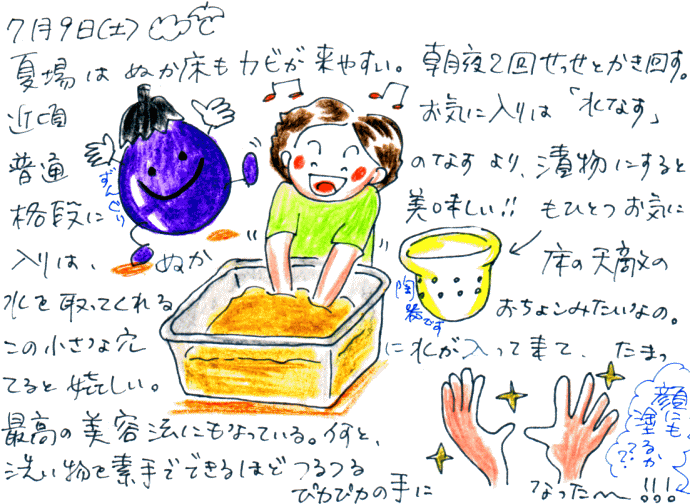 7月9日(土)
夏場はぬか床もカビが来やすい。朝夜2回せっせとかき回す。
近頃 お気に入りは「水なす」
普通 のなすより、漬物にすると
格段に 美味しい!! もひとつお気に
入りは、ぬか 床の天敵の
水を取ってくれる おちょこみたいなもの。
この小さな穴 に水が入って来て、たまっ
てると嬉しい。
最高の美容法にもなっている。何と、
洗い物を素手でできるほどつるつる
ぴかぴかの手に なった〜!!!
ずんぐり
陶器です
顔にも、
塗るか
??